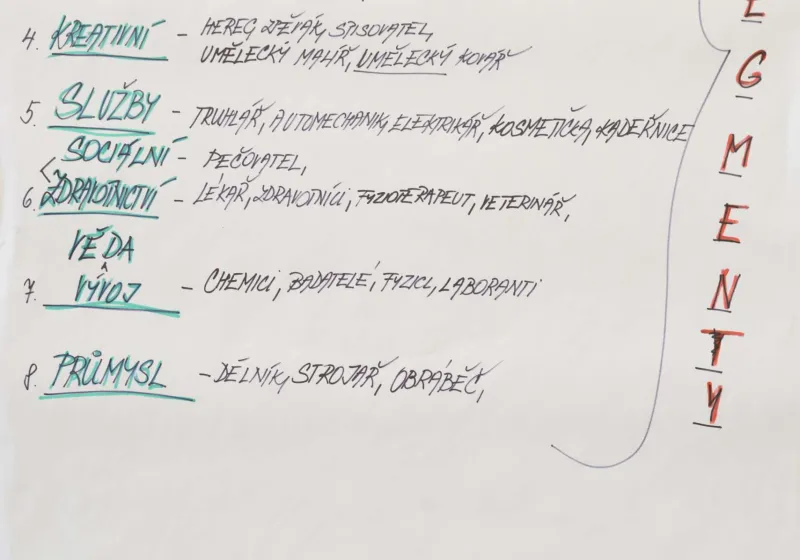 4. KREATIVNÍ - HEREC, ZPĚVÁK, SPISOVATEL,
UMĚLECKÝ MALÍŘ, UMĚLECKÝ KOVÁŘ
5. SLUŽBY - TRUHLÁŘ, AUTOMECHANIK, ELEKTRIKÁŘ, KOSMETIČKA, KADEŘNICE
SOCIÁLNÍ - PEČOVATEL,
6. ZDRAVOTNICTVÍ - LÉKAŘ, ZDRAVOTNÍCI, FYZIOTERAPEUT, VETERINÁŘ,
VĚDA
7. VÝVOJ - CHEMICI, BADATELÉ, FYZICI, LABORANTI
8. PRŮMYSL - DĚLNÍK, STROJAŘ, OBRÁBĚČ,
E
G
M
E
N
T
Y